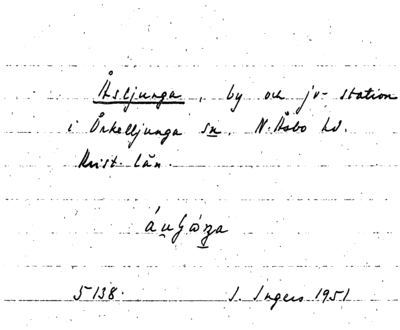 Åsljunga, by och jv-station
i Örkelljunga sn. N. Åsbo hd.
Krist. län.
5138. I. Ingers 1951